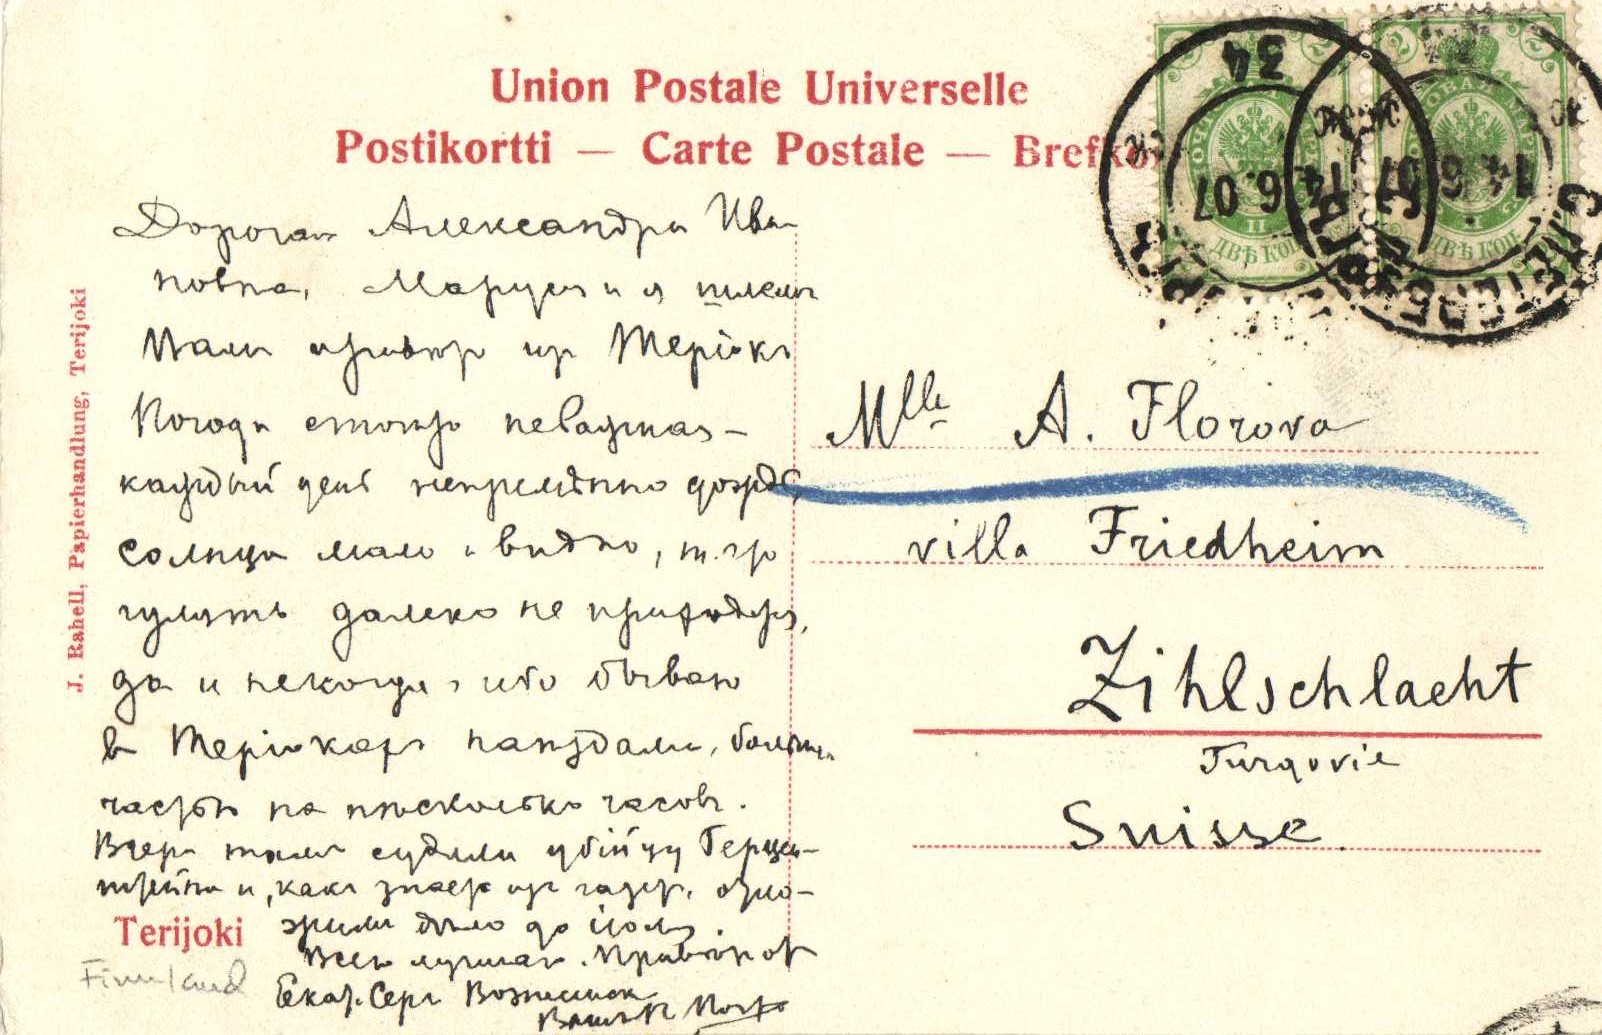 Union Postale Universelle
Postikortti — Carte Postale — Brefko
34
14.6.07
14.6.07
С.ПЕТЕРБУРГЪ
ДВѢ КОП
ДВѢ КОП
J. Rahell, Papierhandlung, Terijoki
Дорогая Александра Ива-
новна, Маруся и я шлемъ
Вамъ привѣтъ изъ Теріокъ
Погода стоитъ неважная –
каждый день непремѣнно дождь,
солнца мало видно, т. что
гулять далеко не приходится,
да и некогда, ибо бываю
в Теріокахъ наѣздами, большей
частью на нѣсколько часовъ.
Вчера тамъ судили убійцу Герцен-
штейна и, какъ знаете изъ газетъ, отло-
жили дѣло до
Всего лучшаго. Привѣтъ отъ
Екат. Серг.
Terijoki
Finnland
Mlle A. Florova
villa Friedheim
Zihlschlacht
Turgovie
Suisse.